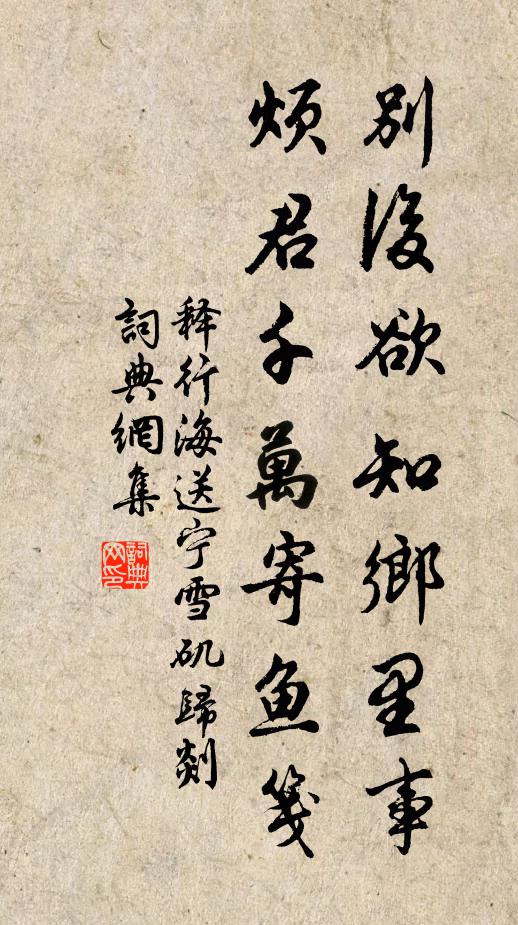 別後欲知鄉里事
煩君千萬寄魚箋
释行海送宁雪矶歸剡
詞典網集
詞典網印